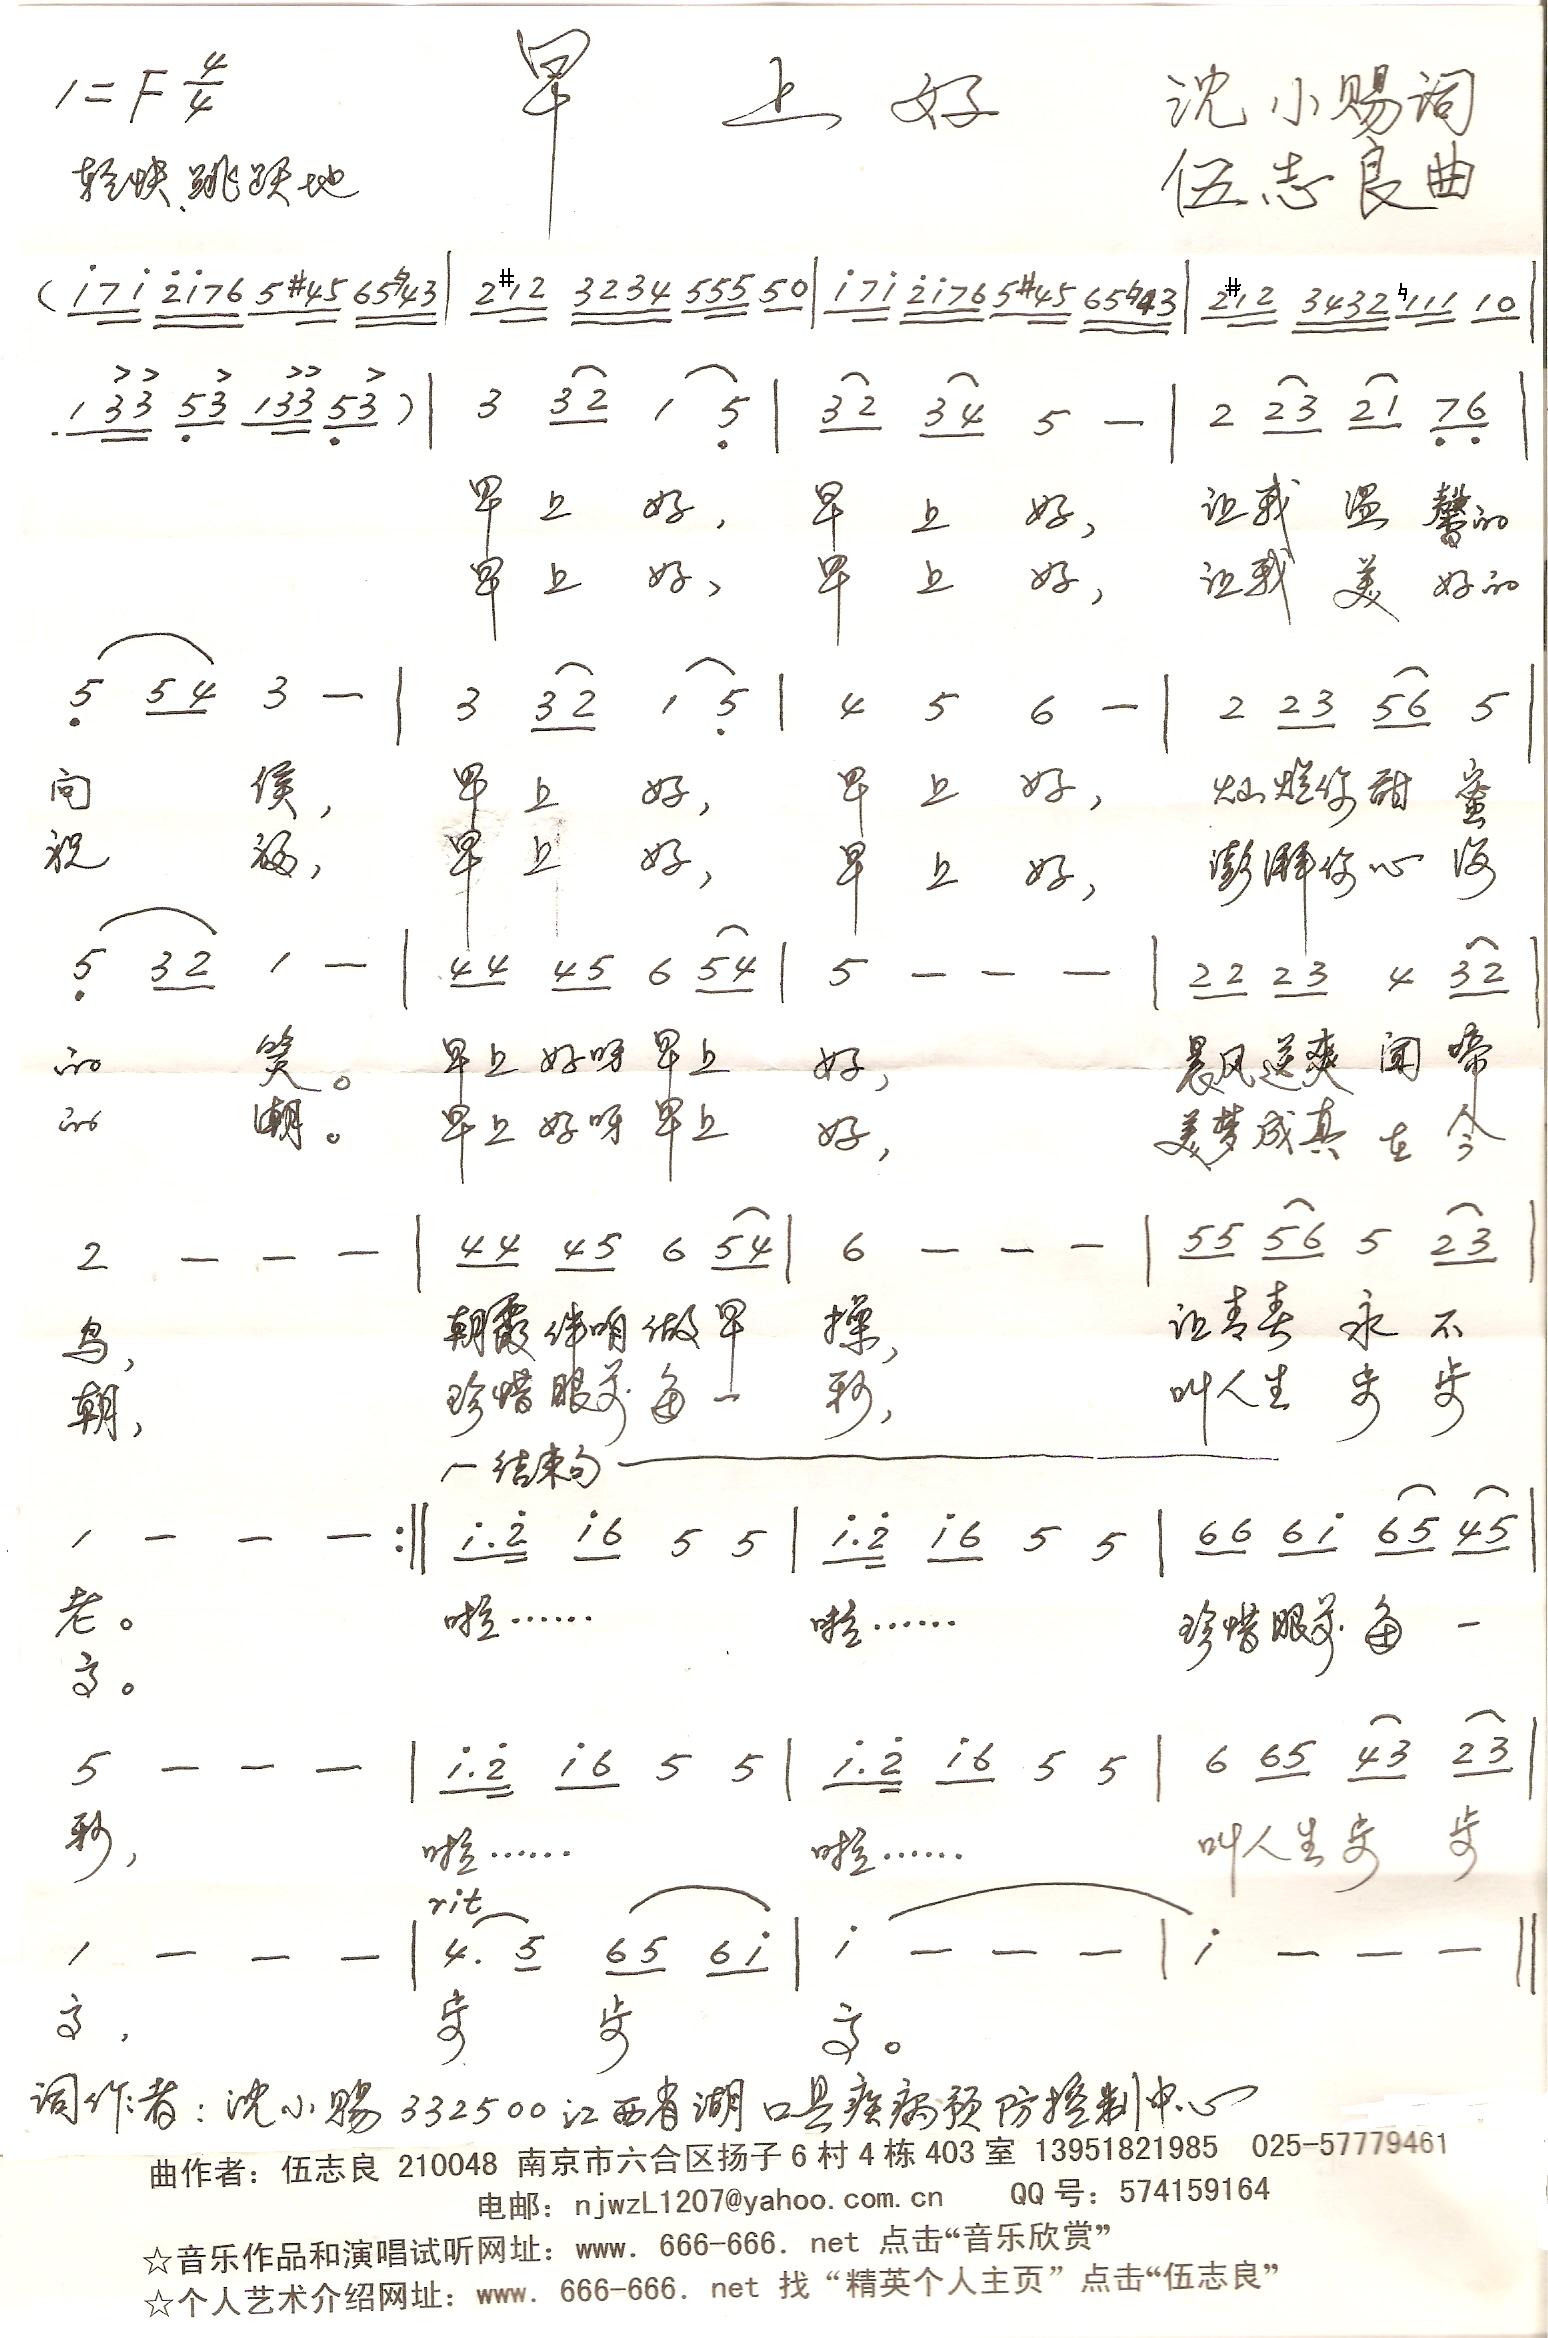 1=F 4/4 早上好 沈小赐词
轻快、跳跃地 伍志良曲
(i7i 2i76 5#45 65♮43 | 2#12 3234 555 50 | i7i 2i76 5#45 65♮43 | 2#12 3432 ♮111 10 |
133 53 133 53) | 3 32 1 5 | 32 34 5 — | 2 23 21 76 |
早上好, 早上好, 让我温馨的
早上好, 早上好, 让我美好的
5 54 3 — | 3 32 1 5 | 4 5 6 — | 2 23 56 5 |
问候, 早上好, 早上好, 灿烂你甜蜜
祝福, 早上好, 早上好, 澎湃你心海
5 32 1 — | 44 45 6 54 | 5 — — — | 22 23 4 32 |
的笑。 早上好呀早上好, 晨风送爽闻啼
的潮。 早上好呀早上好, 美梦成真在今
2 — — — | 44 45 6 54 | 6 — — — | 55 56 5 23 |
鸟, 朝霞伴咱做早操, 让青春永不
朝, 珍惜眼前每一秒, 叫人生步步
结束句
1 — — — :‖ i.2 i6 5 5 | i.2 i6 5 5 | 66 6i 65 45 |
老。 啦…… 啦…… 珍惜眼前每一
高。
5 — — — | i.2 i6 5 5 | i.2 i6 5 5 | 6 65 43 23 |
秒, 啦…… 啦…… 叫人生步步
rit
1 — — — | 4. 5 65 6i | i — — — | i — — — ‖
高, 步步高。
词作者:沈小赐 332500 江西省湖口县疾病预防控制中心
曲作者: 伍志良 210048 南京市六合区扬子6村4栋403室 13951821985 025-57779461
电邮: njwzL1207@yahoo.com.cn QQ号: 574159164
☆音乐作品和演唱试听网址: www. 666-666. net 点击“音乐欣赏”
☆个人艺术介绍网址: www. 666-666. net 找“精英个人主页”点击“伍志良”